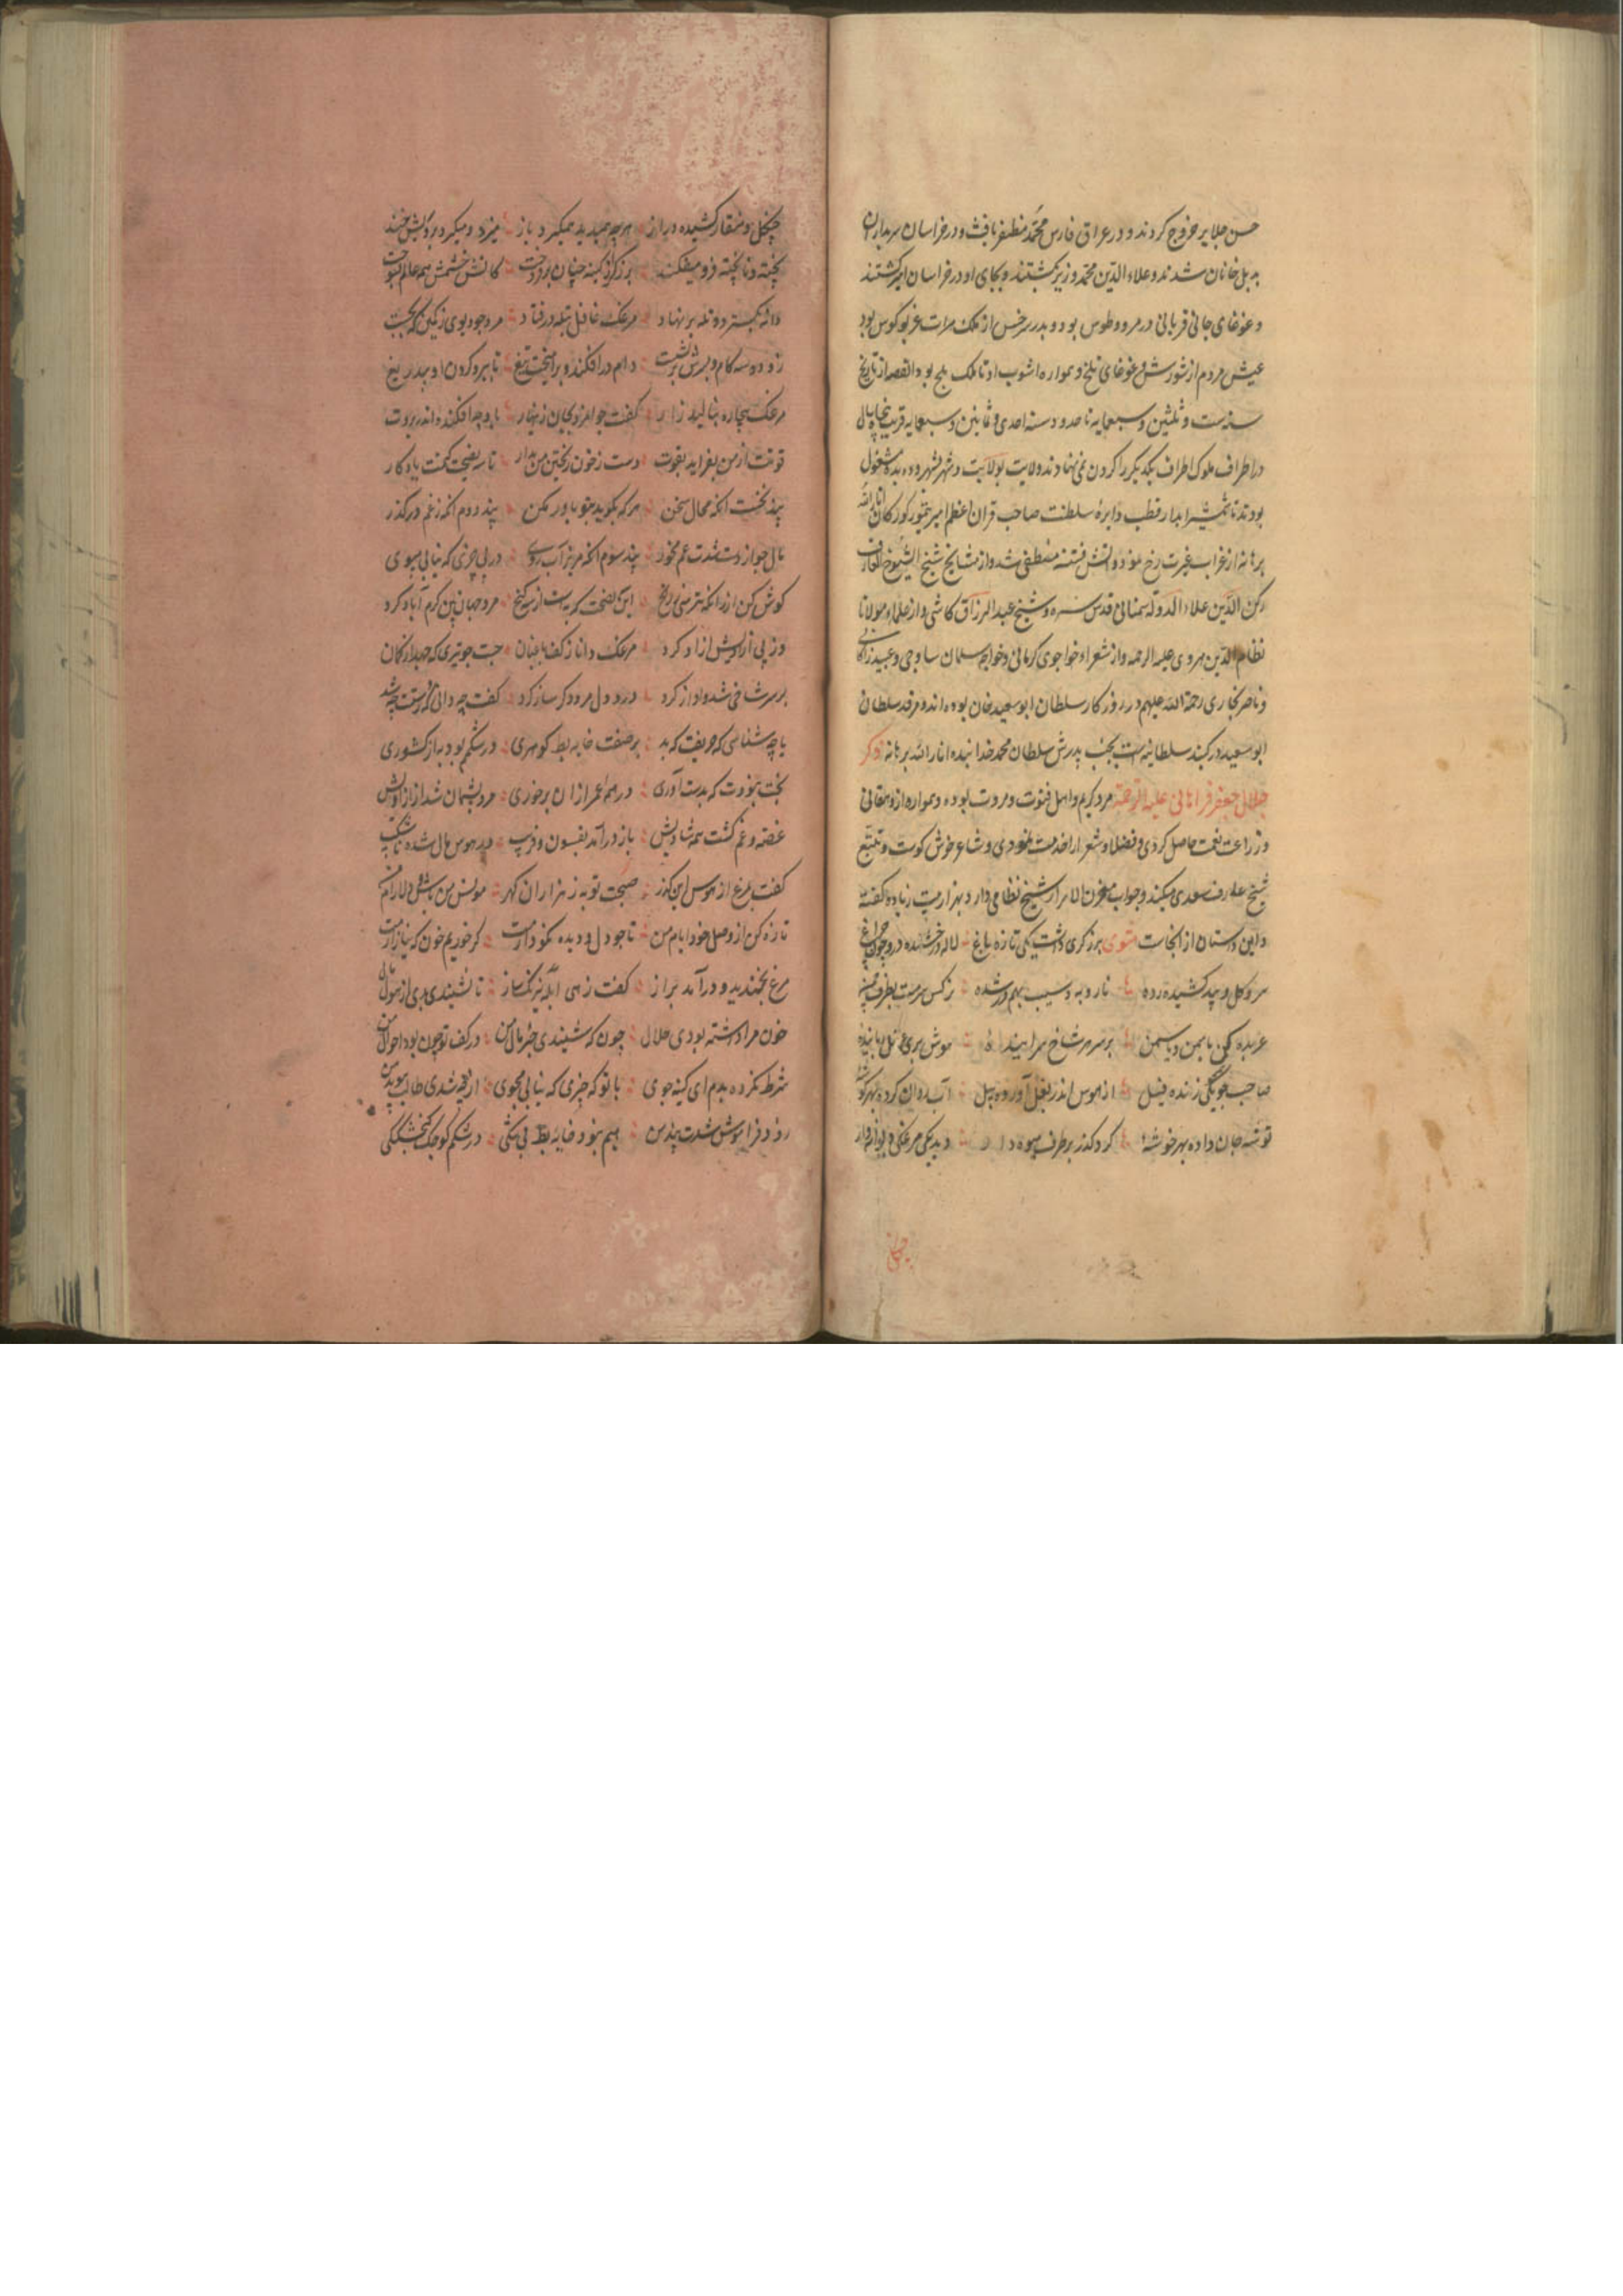 حسن جلایر خروج کردند و در عراق فارس محمد مظفر یافت و در خراسان سربداران
بدل خانان شدند و علاء الدین محمد وزیر بکشتند و بجای او در خراسان امیر کشتند
و غوغای جانی قربانی در مرو و طوس بود و بدر سرخس از ملک هرات غریو کوس بود
عیش مردم از شورش و غوغای تلخ و همواره اشوب او تا ملک بلخ بود القصه از تاریخ
سنه ست و ثلثین و سبعمایه تا حدود سنه احدی و ثمانین و سبعمایه قریب پنجاه سال
در اطراف ملوک اطراف یکدیکر را کردن نمی نهادند ولایت بولایت و شهر بشهر و ده بده مشغول
بودند تا شمشیر ابدار قطب دایره سلطنت صاحب قران اعظم امیر تیمور کورکان انار الله
برهانه از غراب غیرت رخ نمود و اتش فتنه منطفی شد و از مشایخ شیخ الشیوخ العارف
رکن الدین علاء الدوله سمنانی قدس سره و شیخ عبد الرزاق کاشی و از علماء مولانا
نظام الدین هروی علیه الرحمه و از شعراء خواجوی کرمانی و خواجه سلمان ساوجی و عبید زاکانی
و ناصر بخاری رحمة الله علیهم در روزکار سلطان ابو سعید خان بوده اند و مرقد سلطان
ابو سعید در کنبد سلطانیه است بجنب پدرش سلطان محمد خدابنده انار الله برهانه ذکر
جلال جعفر فراهانی علیه الرحمة مرد کریم و اهل فتوت و مروت بوده و همواره از دهقانی
و زراعت نعمت حاصل کردی و فضلا و شعرا را خدمت نمودی و شاعر خوش کوست و تتبع
شیخ عارف سعدی میکند و جواب مخزن الاسرار شیخ نظامی دارد بهزار بیت زیاده کفته
و این داستان از انجاست مثنوی برزکری داشت یکی تازه باغ لاله درخشنده درو چون چراغ
سرو و کل و بید کشیده رده نار و به و سیب بهم در شده نرکس سرمست بطرف چمن
عربده کن با سمن و یاسمن بر سر هر شاخ سراینده
صاحب جو یکی زنده فیل از هوس اندر بغل آورده بیل آب روان کرده بهر کوشه
توشه جان داده بهر خوشه کرد کذر بر طرف میوه دار دید یکی مرغکی دیوانه وار
چنکل و منقار کشیده دراز هر چه همیدید همیکرد باز میزد و میکرد
پخته و ناپخته فرو میفکند برزکر از کینه چنان بر فروخت کاتش خشمش همه عالم بسوخت
دانه بکسترد و تله بر نهاد مرغک غافل بتله در فتاد مرد جو بوی ز کمین که بجست
زود دو سه کام و برش بر نشست دام در افکند و بر اهیخت تیغ تا ببرد کردن او بیدریغ
مرغک بیچاره بنالید زار کفت جوانمرد بجان زینهار
قوتت از من نفزاید بقوت دست ز خون ریختن من بدار تا سه نصیحت کنمت یادکار
پند نخست آنکه محال سخن هر که بکوید بتو باور مکن پند دوم آنکه ز غم در کذر
مال چو از دست شدت غم مخور پند سوم آنکه مریز آب روی در پی چیزی که نیابی مپوی
کوش کن از آنکه نترسی ز رنج این سه نصیحت که به است از سه کنج مرد جهان بین کرم آباد کرد
وز پی آزادیش آزاد کرد مرغک دانا ز کف باغبان جست چو تیری که جهد از کمان
بر سر شاخی شد و آواز کرد درد دل مرد دکر ساز کرد کفت چه دانی که ز دستت چه شد
یا چه شناسی که حریفت که بد بر صفت خایه بط کوهری در شکمم بود به از کشوری
بخت نبودت که بدست آوری در همه عمر از ان برخوری مرد پشیمان شد از آزادیش
غصه و غم کشت همه شادیش باز در آمد بفسون و فریب
کفت بمرغ از هوس این کذر صحبت تو به ز هزاران کهر مونس من باش و دلارام من
تازه کن از وصل خود ایام من تا چو دل و دیده نکو دارمت
مرغ بخندید و در آمد براز کفت زهی ابله نیرنکساز تا نشنیدی بدی از هول مال
خون مرا داشته بودی حلال چون که شنیدی خبر مال من در کف تو چون بود احوال من
شرط نکرده بدم ای کینه جوی با تو که چیزی که نیابی مجوی از چه شدی طالب
زود فراموش شدت پند من بهم نبود خایه بط بی شکی در شکم کوچک کنجشککی